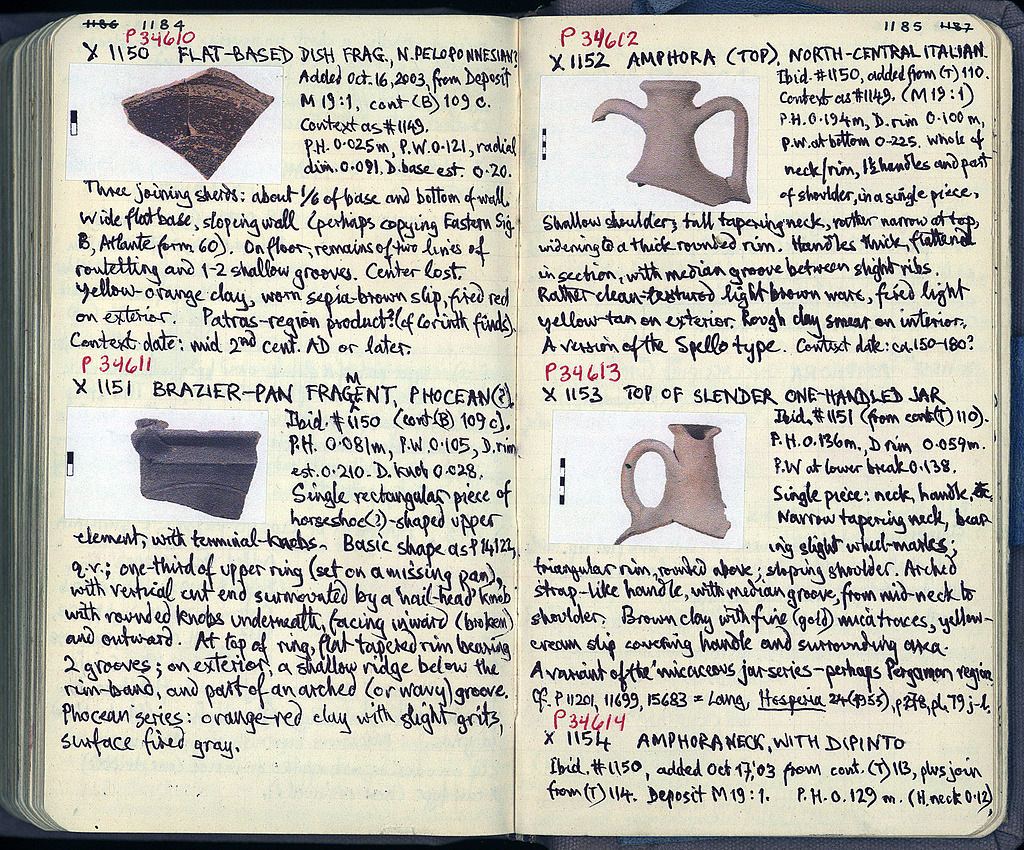 1186 1184
P 34610
X 1150 FLAT-BASED DISH FRAG., N. PELOPONNESIAN?
Added Oct. 16, 2003, from Deposit
M 19:1, cont (B) 109 c.
Context as #1149.
P.H. 0.025m, P.W. 0.121, radial
dim. 0.091. D. base est. 0.20.
Three joining sherds: about 1/6 of base and bottom of wall.
Wide flat base, sloping wall (perhaps copying Eastern Sig.
B, Atlante form 60). On floor, remains of two lines of
rouletting and 1-2 shallow grooves. Center lost.
Yellow-orange clay, worn sepia-brown slip, fired red
on exterior. Patras-region product? (cf Corinth finds).
Context date: mid 2nd cent. AD or later.
P 34611
X 1151 BRAZIER-PAN FRAGMENT, PHOCEAN(?).
Ibid. #1150 (cont (B) 109 c).
P.H. 0.081m, P.W. 0.105, D. rim
est. 0.210. D. knob 0.028.
Single rectangular piece of
horseshoe(?)-shaped upper
element, with terminal-knobs. Basic shape as P 14,122,
q.v.; one-third of upper ring (set on a missing pan),
with vertical cut end surmounted by a 'nail-head' knob
with rounded knobs underneath, facing inward (broken)
and outward. At top of ring, flat tapered rim bearing
2 grooves; on exterior, a shallow ridge below the
rim-band, and part of an arched (or wavy) groove.
Phocean series: orange-red clay with slight grits,
surface fired gray.
1185 1187
P 34612
X 1152 AMPHORA (TOP), NORTH-CENTRAL ITALIAN.
Ibid. #1150, added from (T) 110.
Context as #1149. (M 19:1)
P.H. 0.194m, D. rim 0.100m,
P.W. at bottom 0.225. Whole of
neck/rim, 1½ handles and part
of shoulder, in a single piece.
Shallow shoulder, tall tapering neck, rather narrow at top,
widening to a thick rounded rim. Handles thick, flattened
in section, with median groove between slight ribs.
Rather clean-textured light brown ware, fired light
yellow-tan on exterior. Rough clay smear on interior.
A version of the Spello type. Context date: ca. 150-180?
P 34613
X 1153 TOP OF SLENDER ONE-HANDLED JAR
Ibid. #1151 (from cont (T) 110).
P.H. 0.136m, D rim 0.059m.
P.W at lower break 0.138.
Single piece: neck, handle,
Narrow tapering neck, bear-
ing slight wheel-marks;
triangular rim, rounded above; sloping shoulder. Arched
strap-like handle, with median groove, from mid-neck to
shoulder. Brown clay with fine (gold) mica traces, yellow-
cream slip covering handle and surrounding area.
A variant of the 'micaceous jar series - perhaps Pergamon region.
Cf. P 11201, 11699, 15683 = Lang, Hesperia 24 (1955), p 278, pl. 79 j-l.
P 34614
X 1154 AMPHORA NECK, WITH DIPINTO
Ibid. #1150, added Oct 17, '03 from cont. (T) 113, plus join
from (T) 114. Deposit M 19:1. P.H. 0.129 m. (H. neck 0.12)